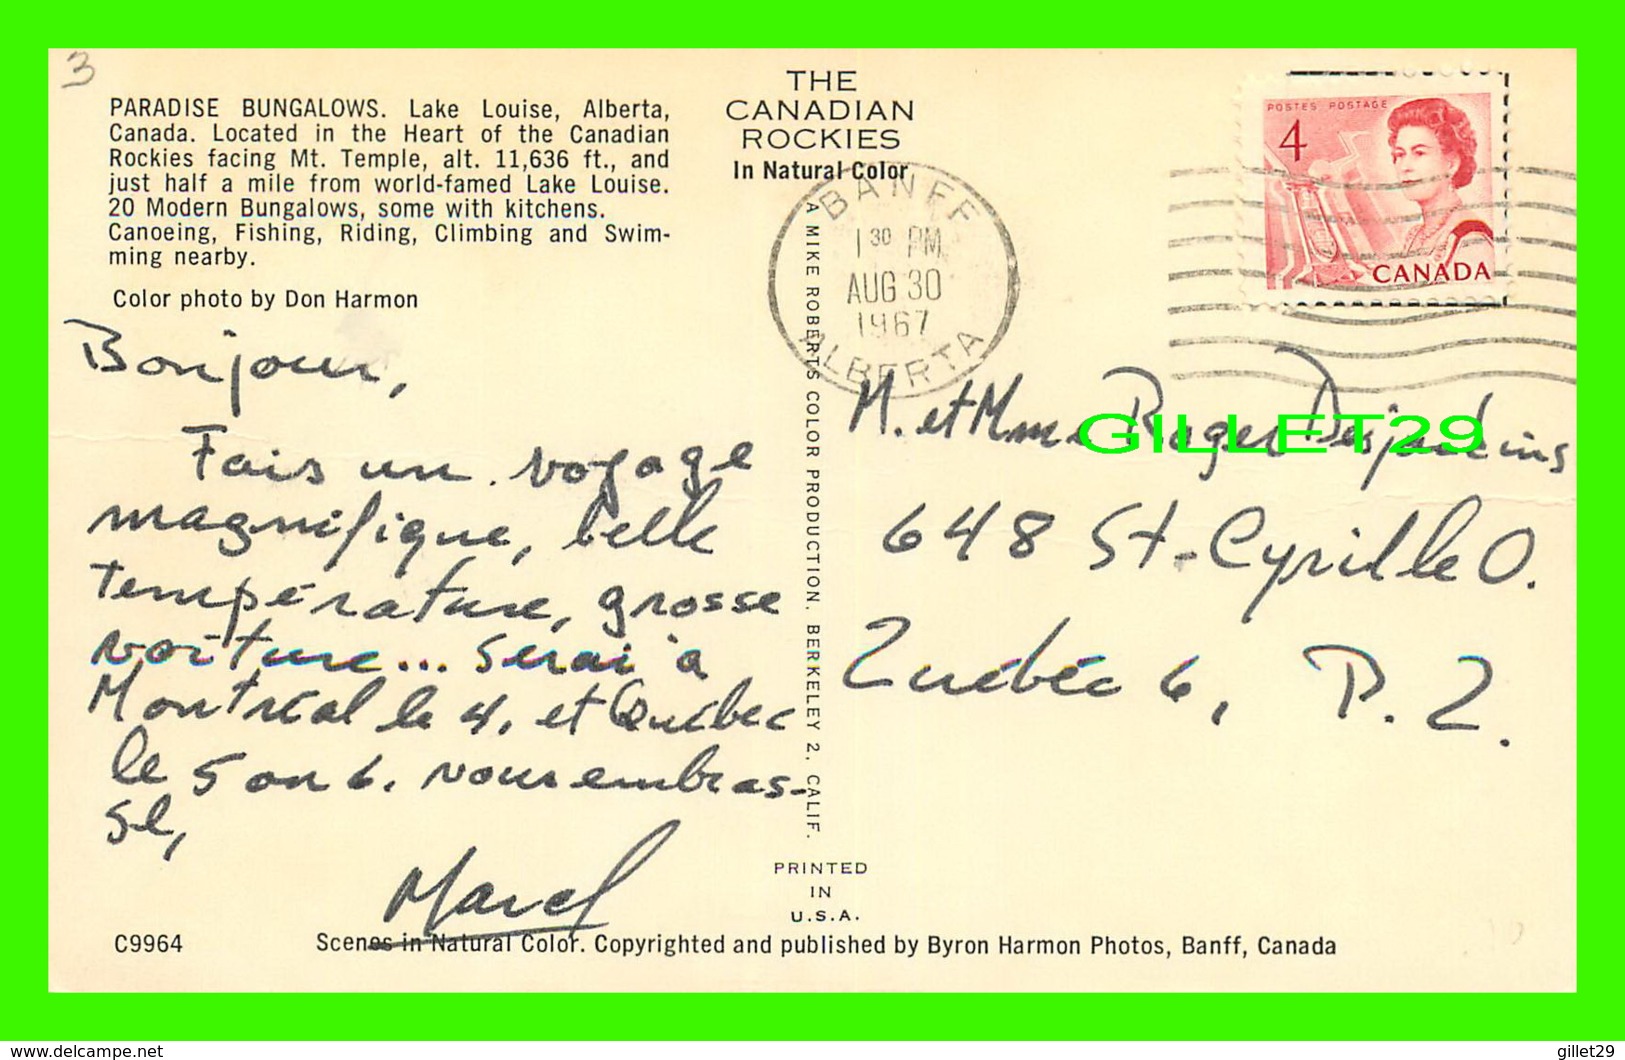 3
PARADISE BUNGALOWS. Lake Louise, Alberta,
Canada. Located in the Heart of the Canadian
Rockies facing Mt. Temple, alt. 11,636 ft., and
just half a mile from world-famed Lake Louise.
20 Modern Bungalows, some with kitchens.
Canoeing, Fishing, Riding, Climbing and Swim-
ming nearby.
Color photo by Don Harmon
THE
CANADIAN
ROCKIES
In Natural Color
BANFF
1 30 PM
AUG 30
1967
ALBERTA
POSTES POSTAGE
4
CANADA
Bonjour,
Fais un voyage
magnifique, belle
température, grosse
voiture... Serai à
Montréal le 4, et Québec
le 5 ou 6. vous embras-
se,
Marcel
A MIKE ROBERTS COLOR PRODUCTION. BERKELEY 2, CALIF.
M. et Mme Roger Desjardins
648 St-Cyrille O.
Québéc 6, P. Q.
GILLET29
PRINTED
IN
U.S.A.
C9964
Scenes in Natural Color. Copyrighted and published by Byron Harmon Photos, Banff, Canada
https://www.delcampe.net
gillet29